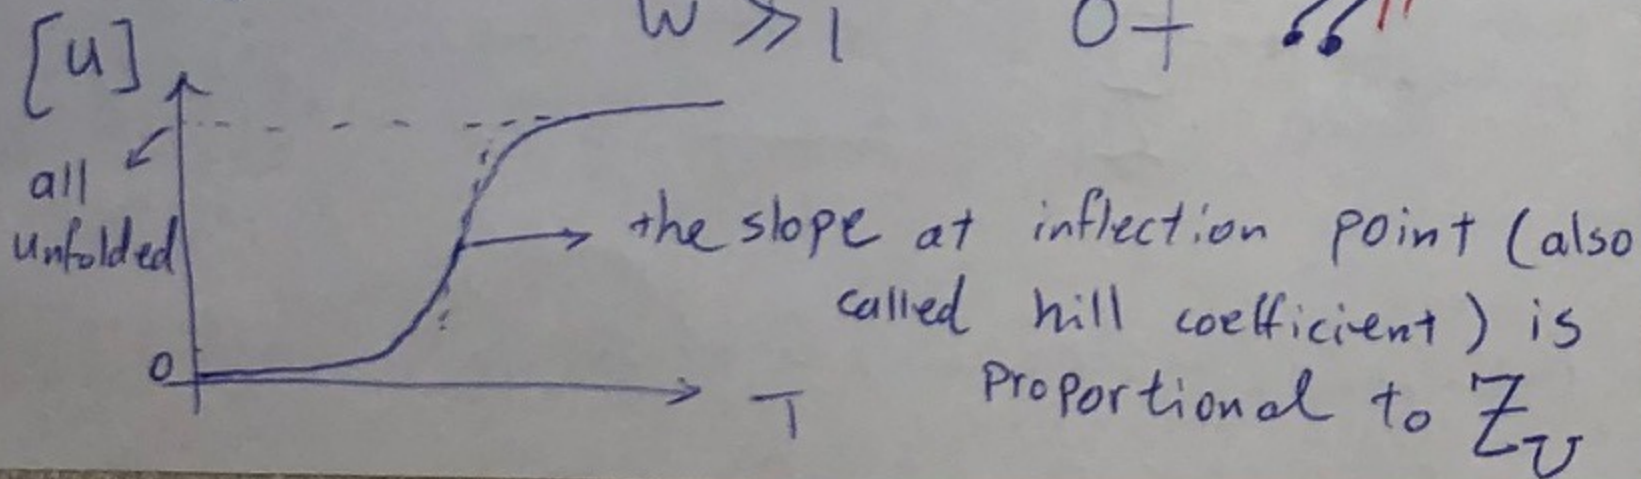 W >> 1 0+
[u]
all
unfolded
0
T
the slope at inflection point (also
called hill coefficient) is
proportional to Z_U